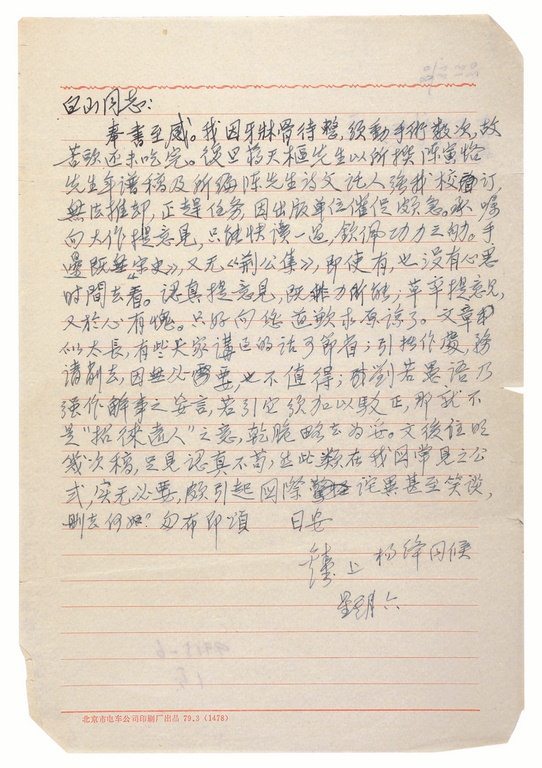 白山同志：
奉書至感。我因牙牀骨待整，須動手術數次，故
苦頭还未吃完。復旦蒋天樞先生以所撰陈寅恪
先生年谱稿及所编陈先生诗文託人強我校訂，
無法推却，正趕任务，因出版单位催促颇急。承嘱
向大作提意見，只能快读一過，欽佩功力之劬。手
邊既無《宋史》，又无《荊公集》，即使有，也没有心思
时間去看。認真提意見，既非力所能；草率提意見，
又於心有愧。只好向您道歉求原諒了。文章
似太長，有些大家講过的话可節省；引拙作處，務
請削去，因無必要也不值得；劉若愚語乃
強作解事之妄言，若引它须加以駁正，那就不
是“招徠遠人”之意，乾脆略去为妥。文後註明
幾次稿，足見認真不苟，然此数在我國常見之公
式，实无必要，颇引起国際诧異甚至笑 ，
刪去何如？匆布即頌 日安
鍾書上 杨绛同候
星期六
北京市电车公司印刷厂出品 79.3 (1478)